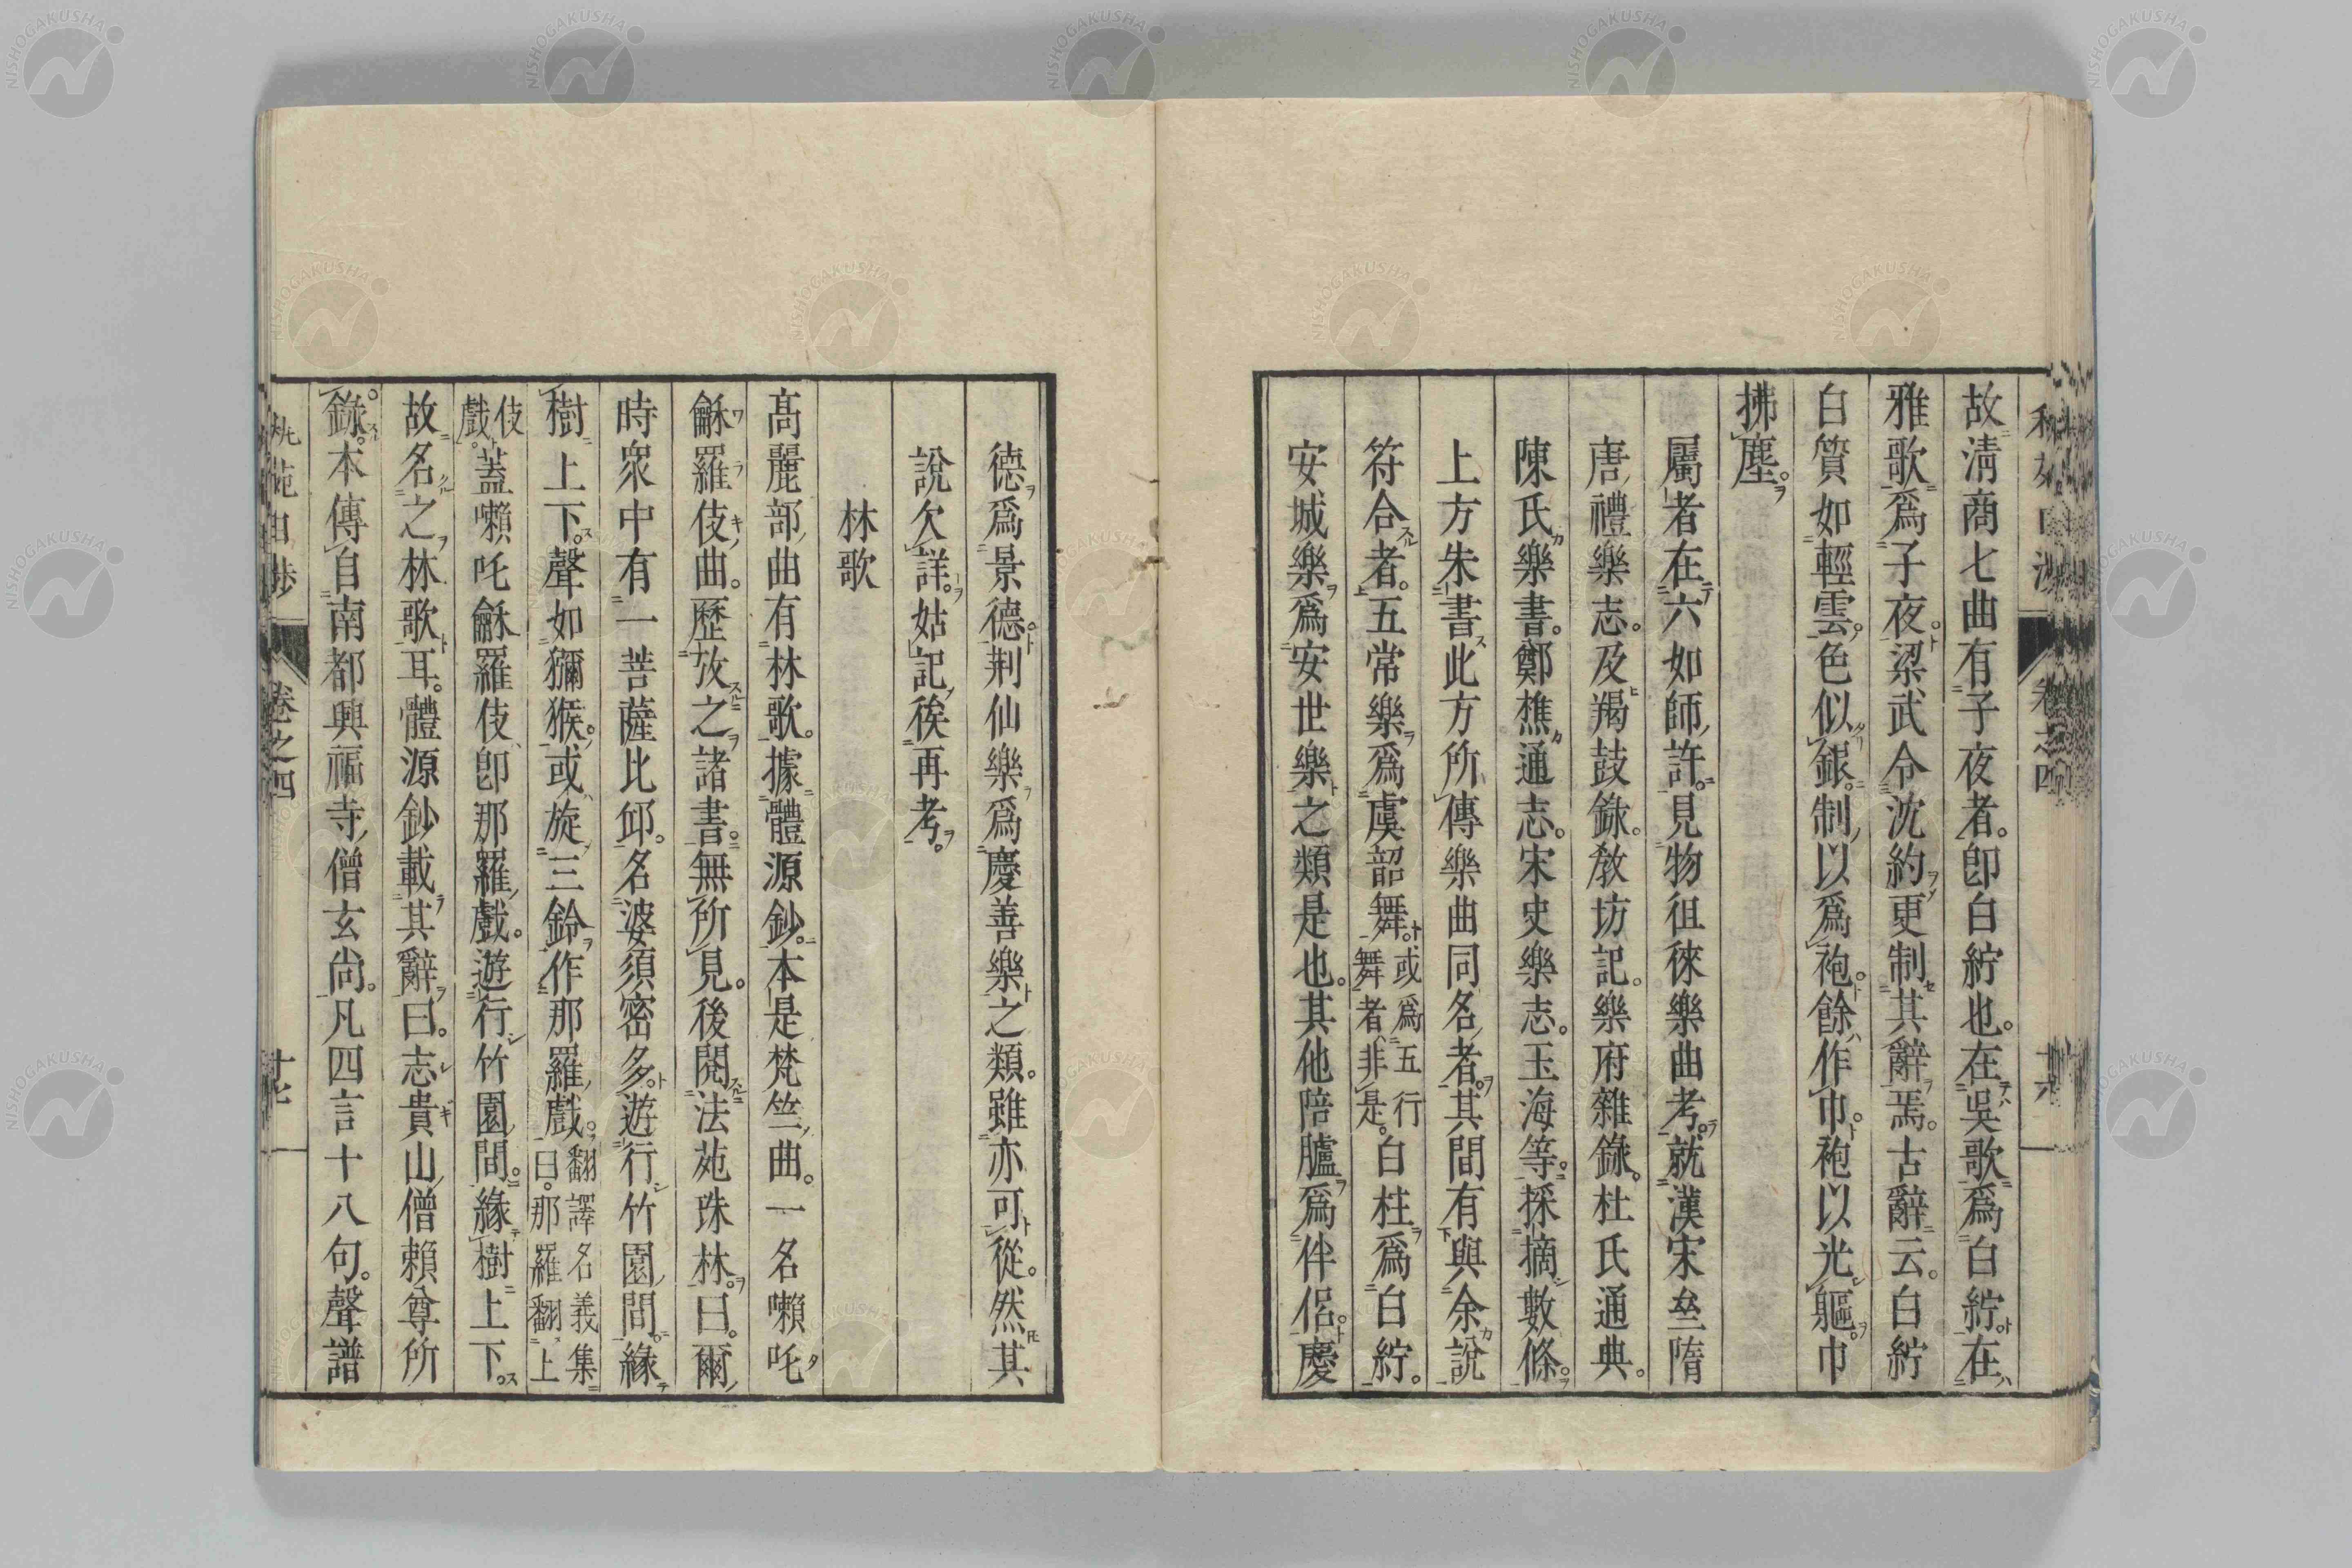 故淸商七曲有子夜者。卽白紵也。在吳歌爲白紵在
雅歌爲子夜。梁武令沈約更制其辭焉。古辭云。白紵
白質如輕雲。色似銀。制以爲袍。餘作巾。袍以光軀。巾
拂塵。
屬者在六如師許。見物徂徠樂曲考。就漢宋亝隋
唐禮樂志。及羯鼓錄。敎坊記。樂府雜錄。杜氏通典。
陳氏樂書。鄭樵通志。宋史樂志。玉海等。採摘數條。
上方朱書此方所傳樂曲同名者。其間有與余說
符合者。五常樂爲虞韶舞。或爲五行舞者非是。白柱爲白紵。
安城樂爲安世樂之類是也。其他陪臚爲伴侶。慶
德爲景德。荆仙樂爲慶善樂之類。雖亦可從。然其
說欠詳。姑記俟再考。
林歌
髙麗部曲有林歌。據體源鈔。本是梵竺曲。一名嚩吒
龢羅伎曲。歷攷之諸書。無所見。後閱法苑珠林。曰。爾
時衆中有一菩薩比邱。名婆須密多。遊行竹園間。緣
樹上下。聲如獼猴。或旋三鈴作那羅戲。翻譯名義集曰。那羅翻上
伎戲。蓋嚩吒龢羅伎卽那羅戲。遊行竹園間。緣樹上下。
故名之林歌耳。體源鈔載其辭曰。志貴山僧賴尊所
錄。本傳自南都興福寺僧玄尙。凡四言十八句。聲譜
卷之四